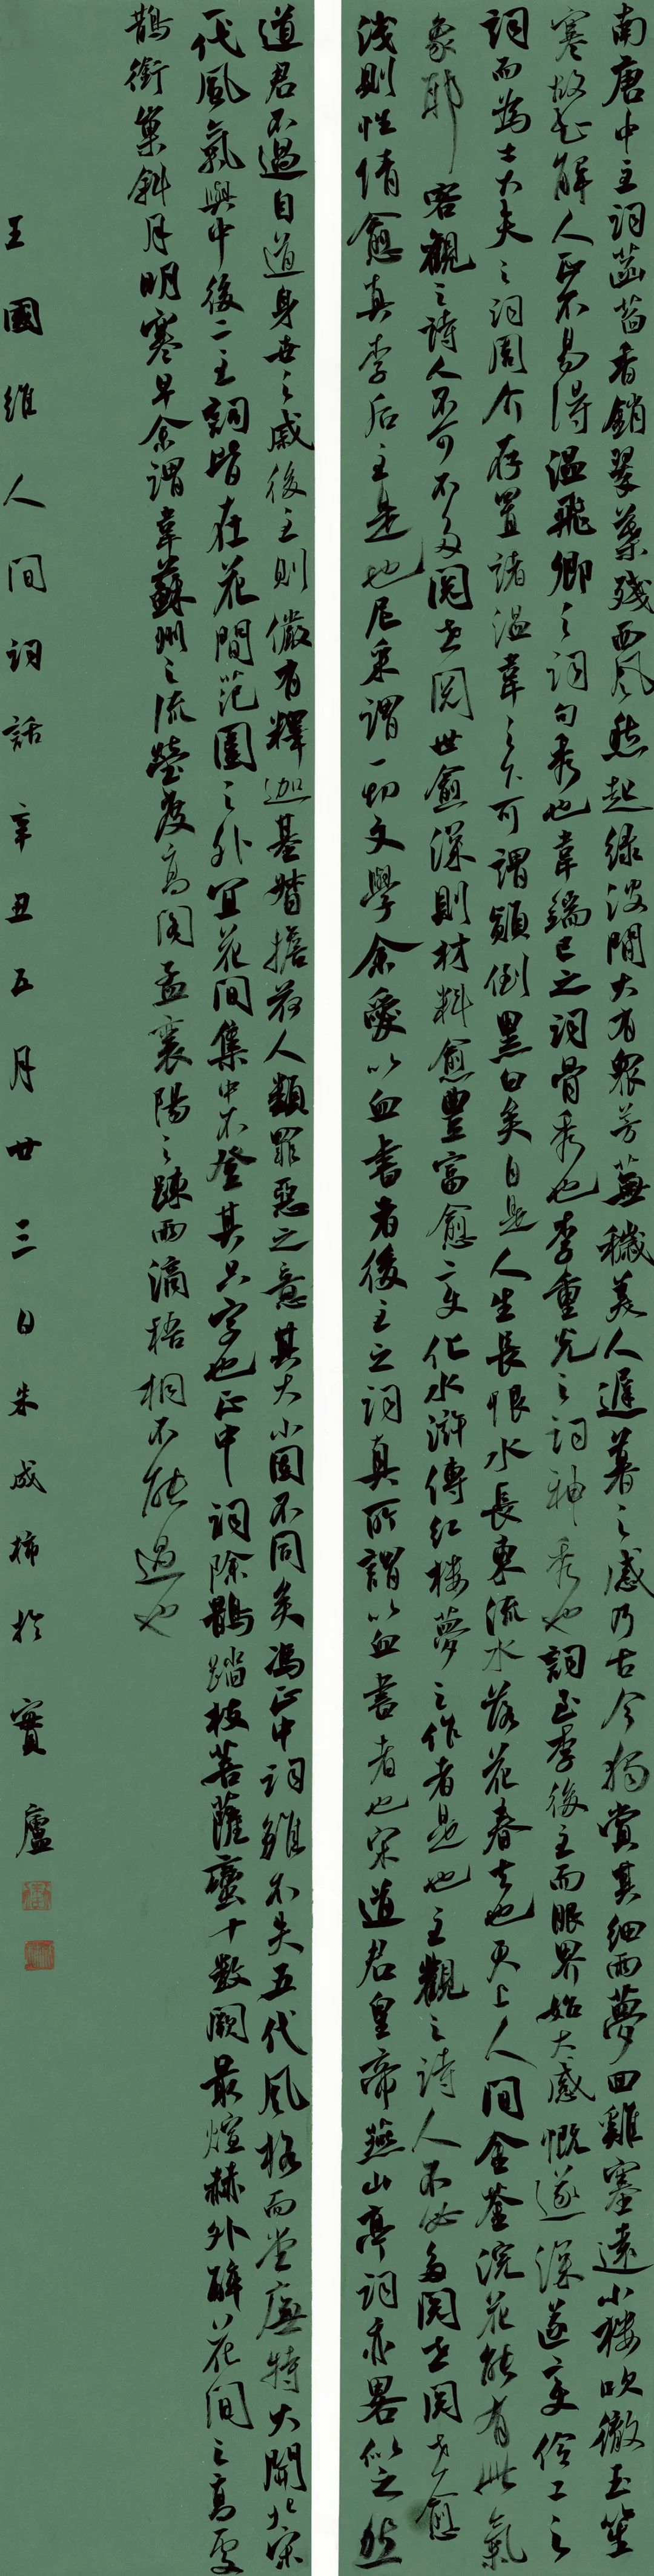 南唐中主词菡萏香銷翠葉殘西風愁起綠波間大有眾芳蕪穢美人遲暮之感乃古今獨賞其細雨夢回雞塞遠小樓吹徹玉笙
寒故知解人正不易得溫飛卿之詞句秀也韋端己之詞骨秀也李重光之詞神秀也詞至李後主而眼界始大感慨遂深遂變伶工之
詞而為士大夫之詞周介存置諸溫韋之下可謂顛倒黑白矣自是人生長恨水長東流水落花春去也天上人間金荃浣花能有此氣
象耶 客觀之詩人不可不多閱世閱世愈深則材料愈豐富愈變化水滸傳紅樓夢之作者是也主觀之詩人不必多閱世閱世愈
淺則性情愈真李后主是也尼采謂一切文學余愛以血書者後主之詞真所謂以血書者也宋道君皇帝燕山亭詞亦畧似之然
道君不過自道身世之戚後主則儼有釋迦基督擔荷人類罪惡之意其大小固不同矣馮正中詞雖不失五代風格而堂廡特大開北宋
一代風氣與中後二主詞皆在花間范圍之外宜花間集中不登其只字也正中詞除鵲踏枝菩薩蠻十數闋最煊赫外醉花間之高處
鵲銜巢斜月明寒草余謂韋蘇州之流螢度高閣孟襄陽之疎雨滴梧桐不能過也
王國維人間詞話辛丑五月廿三日朱成柿於寳廬